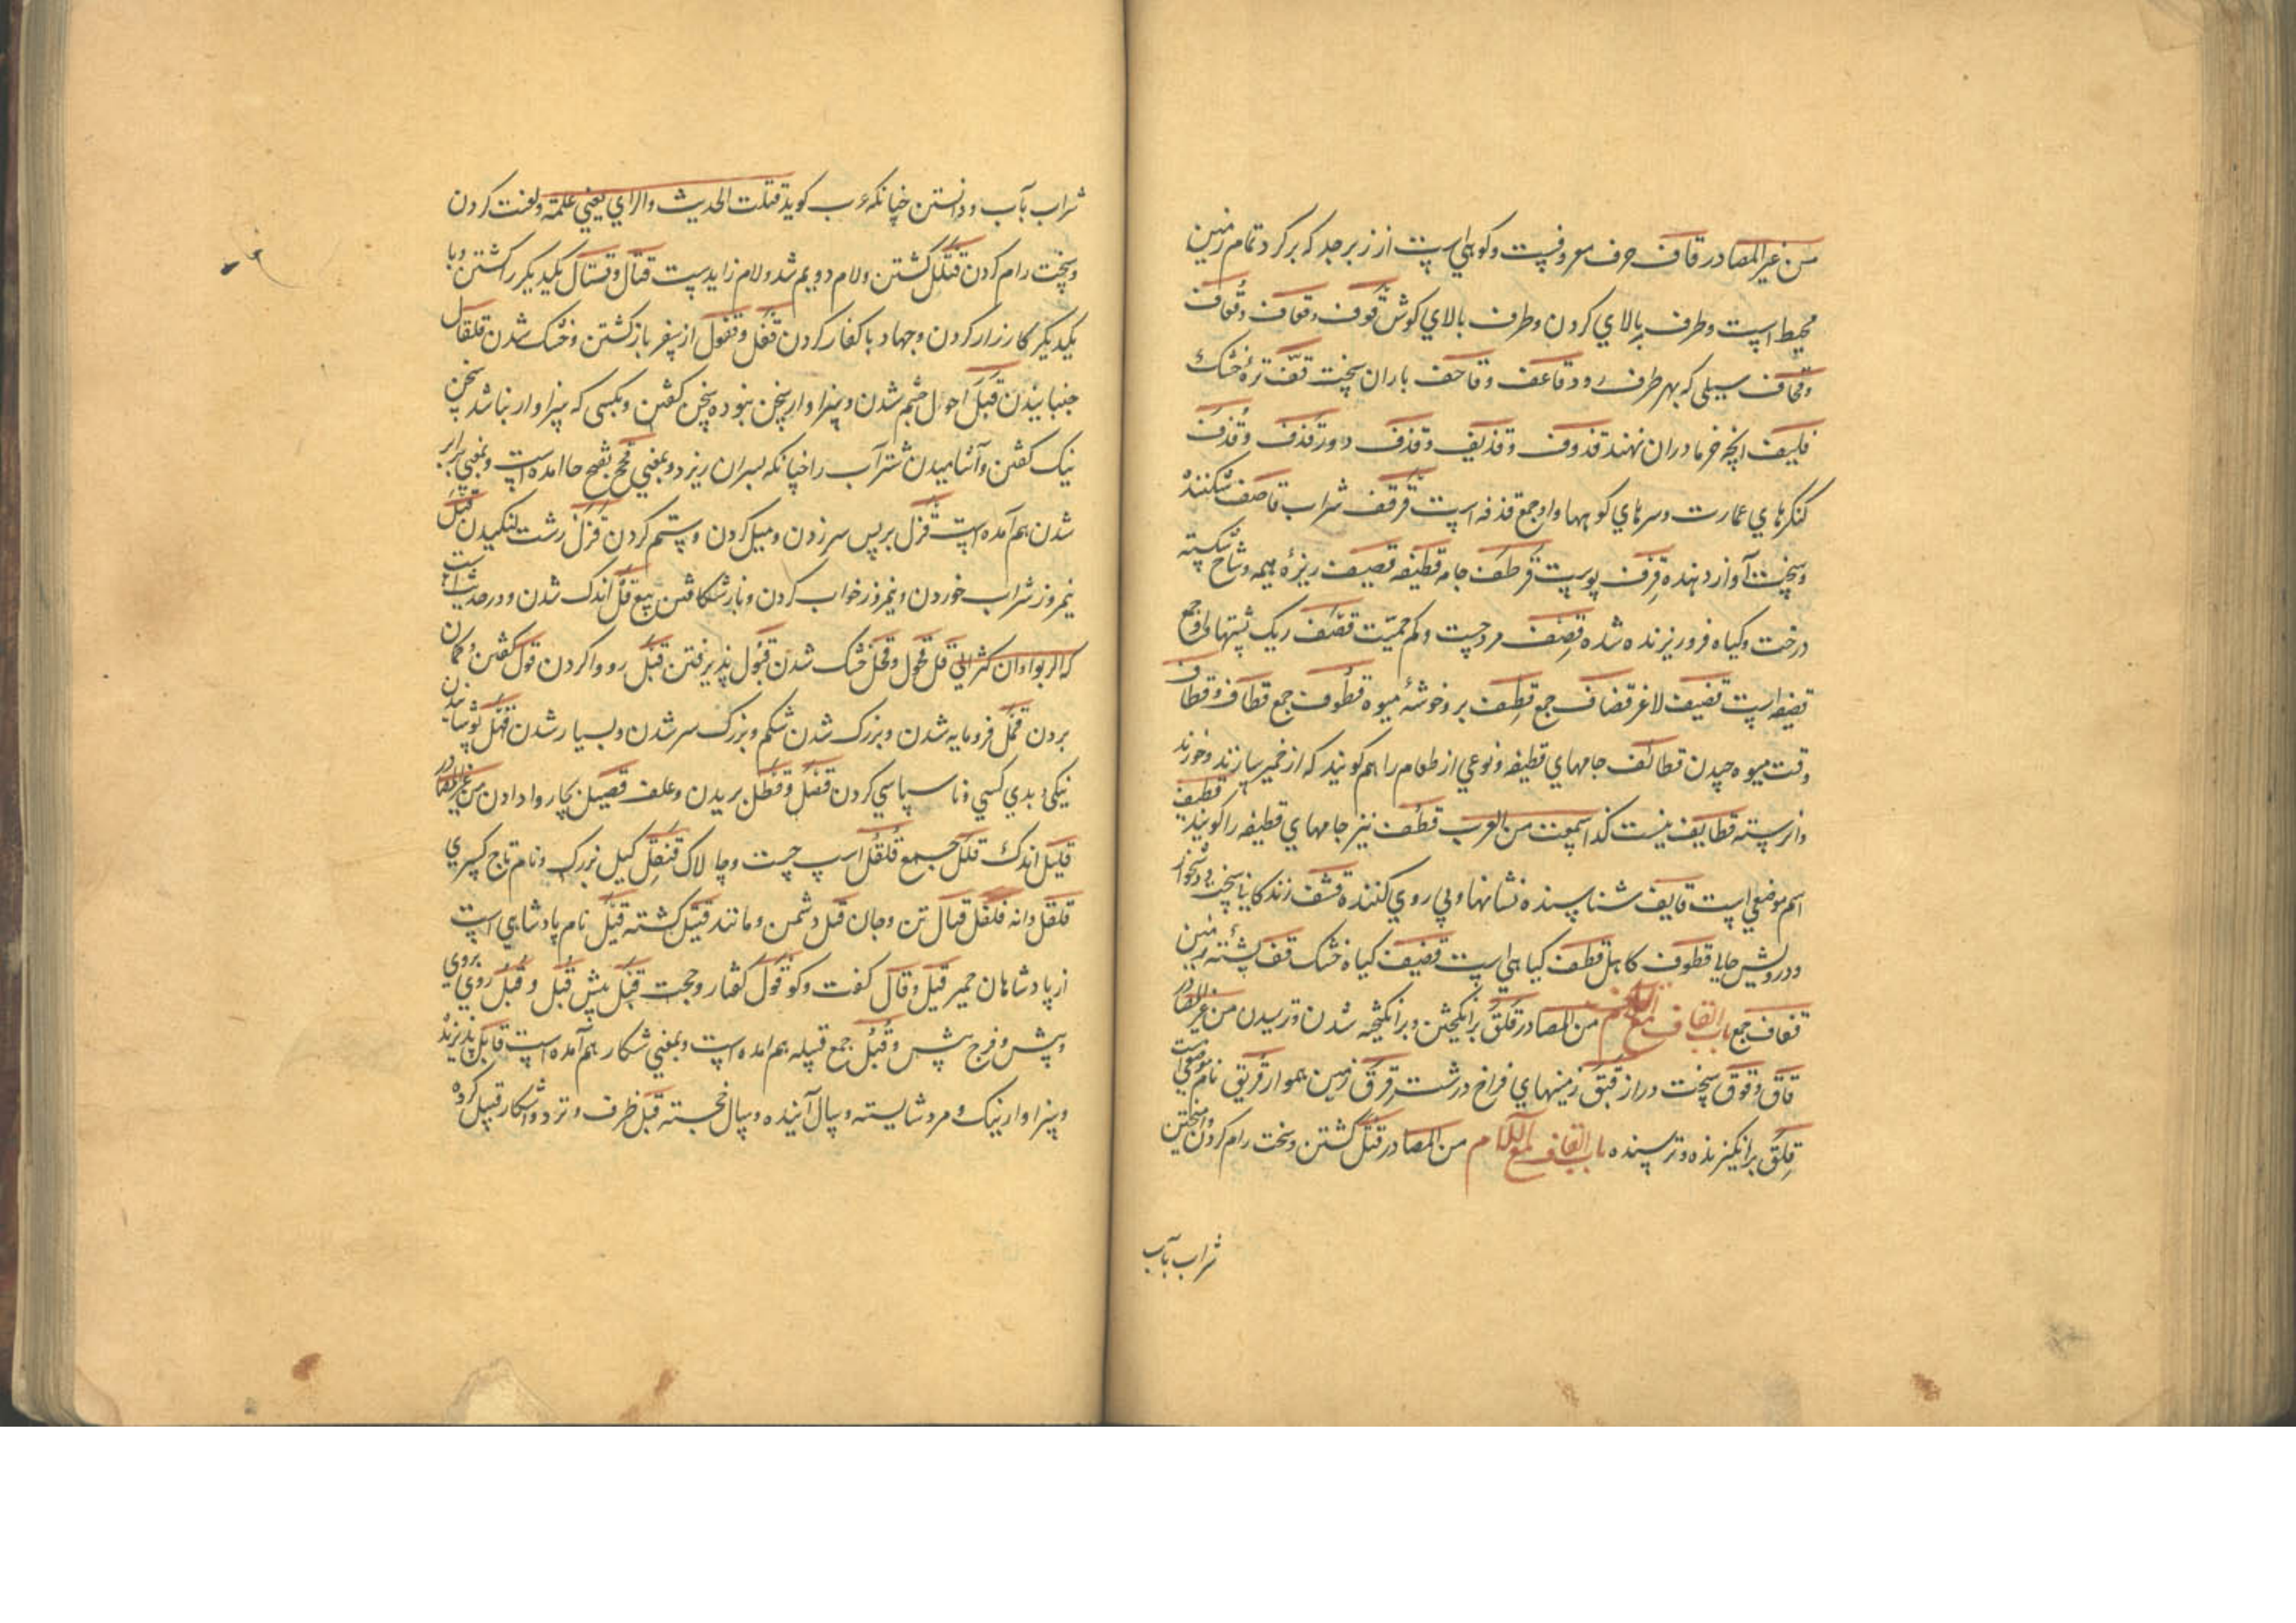 من غیر المصادر قاف حرف معروفست وکوهی است از زبرجد که برکرد تمام زمین
محیط است وطرف بالای کردن وطرف بالای کوش قوف وقعاف وقعاف
وقحاف سیلی که بهر طرف رود قاعف وقاحف باران سخت قف تره خشک
قلیف انچه خرما دران نهند قذوف وقذیف وقذف دور قذف وقذف
کنکرهای عمارت وسرهای کوهها واو جمع قذفه است قرقف شراب قاصف شکننده
وسخت آواز دهنده قرف پوست قرطف جامه قطیفه قصیف ریزهٔ هیمه وشاخ شکسته
درخت وکیاه فرو ریزنده شده قصف مرد چست وکم حمیّت قضف ریک پشتها واو جمع
قضفه است قضیف لاغر قضاف جمع قطف بر وخوشهٔ میوه قطوف جمع قطاف وقطاف
وقت میوه چیدن قطائف جامهای قطیفه ونوعی از طعام را هم کویند که از خمیر سازند وخورند
واز رسته قطایف نیست کذا سمعت من العرب قطف نیز جامهای قطیفه را کویند قطیف
اسم موضعی است قایف شناسنده نشانها وپی روی کننده قشف زندکانی سخت ودشخوار
ودرویش حالی قطوف کاهل قطف کیاهی است قفیف کیاه خشک قف پشتهٔ زمین
قفاف جمع باب القاف مع القاف من المصادر قلق برانکیختن وبرانکیخته شدن وترسیدن من غیر المصادر
قاق وقوق سخت دراز قیق زمینهای فراخ درشت قرق زمین هموار قریق نام موضعی است
قلق برانکیزنده وترسنده باب القاف مع اللام من المصادر قتل کشتن وسخت رام کردن وامیختن
شراب بآب
شراب بآب ودانستن چنانکه عرب کوید قتلت الحدیث والرای یعنی علمته ولعنت کردن
وسخت رام کردن قتلل کشتن ولام دویم شد ولام زاید ست قتال وقیتال یکدیکر را کشتن وبا
یکدیکر کارزار کردن وجهاد با کفار کردن قفل وقفول از سفر باز کشتن وخشک شدن قلقال
جنبانیدن قبل احول چشم شدن وسزاوار سخن نبوده سخن کفتن وبکسی که سزاوار نباشد سخن
نیک کفتن وآشامیدن شتر آب را چنانکه بسران ریزد وبمعنی قحح بفتح حا امده است وبمعنی برابر
شدن هم آمده است قزل بر پس سر زدن ومیل کردن وستم کردن قزل زشت لنکیدن قیل
نیمروز شراب خوردن ونیمروز خواب کردن وباز شکافتن بیع قل اندک شدن ودر حدیث است
که الربوا وان کثر الی قل قحول وقحل خشک شدن قبول پذیرفتن قبل رو وا کردن قول کفتن وکمان
بردن قمل فرومایه شدن وبزرک شدن شکم وبزرک سر شدن وبسیار شدن قهل پوشانیدن
نیکی وبدی کسی وناسپاسی کردن قصل وقطل بریدن وعلف قصیل بچاروا دادن من غیر المصادر
قلیل اندک قلل جمع قلقل اسپ چست وچالاک قنقل کیل بزرک ونام تاج کسری
قلقل دانه فلفل قبال تن وجان قتل دشمن ومانند قتیل کشته قیل نام پادشاهی است
از پادشاهان حمیر قیل وقال کفت وکو قول کفتار وحجت قبل پیش قبل وقبل روی بروی
وپیش وفرج پیش وقبل جمع قبیله هم امده است وبمعنی شکار هم آمده است قابل پذیرنده
وسزاوار نیک ومرد شایسته وسال آینده وسال خجسته قبل طرف ونزد واشکار قبیل کروه